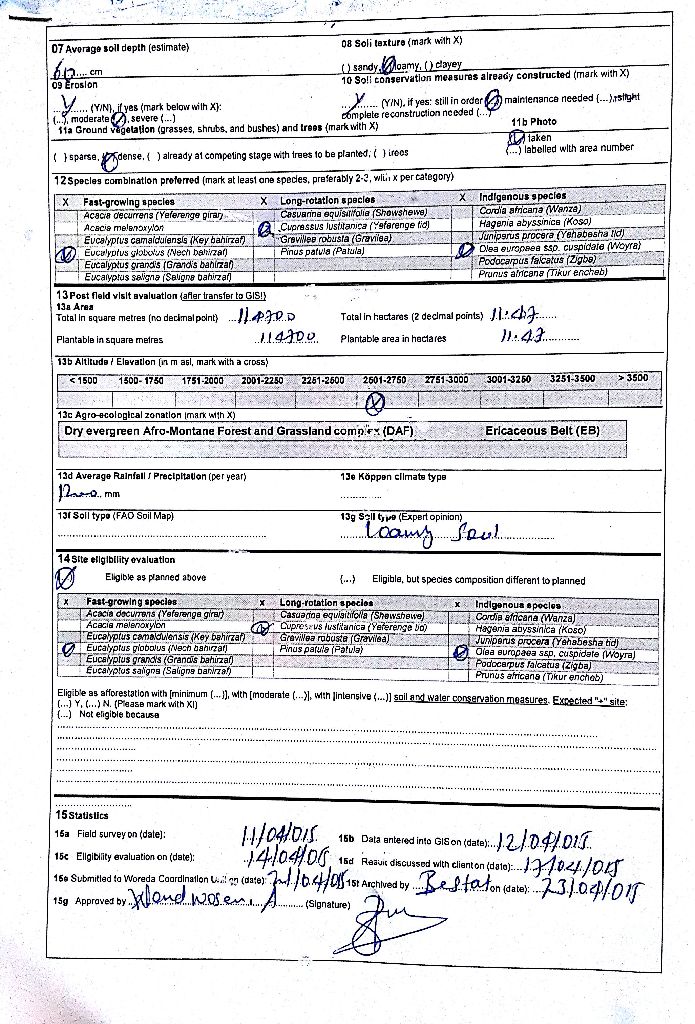 07 Average soil depth (estimate)
08 Soil texture (mark with X)
60.... cm
( ) sandy, ( ) loamy, ( ) clayey
09 Erosion
10 Soil conservation measures already constructed (mark with X)
Y (Y/N), if yes (mark below with X):
Y (Y/N), if yes: still in order ( ) maintenance needed (...), slight
(...), moderate ( ), severe (...)
complete reconstruction needed (...)
11a Ground vegetation (grasses, shrubs, and bushes) and trees (mark with X)
11b Photo
( ) taken
( ) sparse, ( ) dense, ( ) already at competing stage with trees to be planted, ( ) trees
(...) labelled with area number
12 Species combination preferred (mark at least one species, preferably 2-3, with x per category)
X Fast-growing species X Long-rotation species X Indigenous species
Acacia decurrens (Yeferenge girar) Casuarina equisitifolia (Shewshewe) Cordia africana (Wanza)
Acacia melenoxylon Cupressus lusitanica (Yeferenge tid) Hagenia abyssinica (Koso)
Eucalyptus camaldulensis (Key bahirzaf) Grevillea robusta (Gravilea) Juniperus procera (Yehabesha tid)
Eucalyptus globolus (Nech bahirzaf) Pinus patula (Patula) Olea europaea ssp. cuspidate (Woyra)
Eucalyptus grandis (Grandis bahirzaf) Podocarpus falcatus (Zigba)
Eucalyptus saligna (Saligna bahirzaf) Prunus africana (Tikur encheb)
13 Post field visit evaluation (after transfer to GIS!)
13a Area
Total in square metres (no decimal point) ...114700 Total in hectares (2 decimal points) 11.47
Plantable in square metres 114700 Plantable area in hectares 11.47
13b Altitude / Elevation (in m asl, mark with a cross)
< 1500 1500-1750 1751-2000 2001-2250 2251-2500 2501-2750 2751-3000 3001-3250 3251-3500 > 3500
13c Agro-ecological zonation (mark with X)
Dry evergreen Afro-Montane Forest and Grassland complex (DAF) Ericaceous Belt (EB)
13d Average Rainfall / Precipitation (per year) 13e Köppen climate type
1200.. mm
13f Soil type (FAO Soil Map) 13g Soil type (Expert opinion)
Loamy Soil
14 Site eligibility evaluation
Eligible as planned above (...) Eligible, but species composition different to planned
x Fast-growing species x Long-rotation species x Indigenous species
Acacia decurrens (Yeferenge girar) Casuarina equisitifolia (Shewshewe) Cordia africana (Wanza)
Acacia melenoxylon Cupressus lusitanica (Yeferenge tid) Hagenia abyssinica (Koso)
Eucalyptus camaldulensis (Key bahirzaf) Grevillea robusta (Gravilea) Juniperus procera (Yehabesha tid)
Eucalyptus globolus (Nech bahirzaf) Pinus patula (Patula) Olea europaea ssp. cuspidate (Woyra)
Eucalyptus grandis (Grandis bahirzaf) Podocarpus falcatus (Zigba)
Eucalyptus saligna (Saligna bahirzaf) Prunus africana (Tikur encheb)
Eligible as afforestation with [minimum (...)], with [moderate (...)], with [intensive (...)] soil and water conservation measures. Expected "+" site:
(...) Y, (...) N. (Please mark with X!)
(...) Not eligible because
15 Statistics
15a Field survey on (date): 11/04/015 15b Data entered into GIS on (date): 12/04/015
15c Eligibility evaluation on (date): 14/04/015 15d Result discussed with client on (date): 17/04/015
15e Submitted to Woreda Coordination on (date): 21/04/015 15f Archived by ...Bestat on (date): 23/04/015
15g Approved by Wendwosen A (Signature)